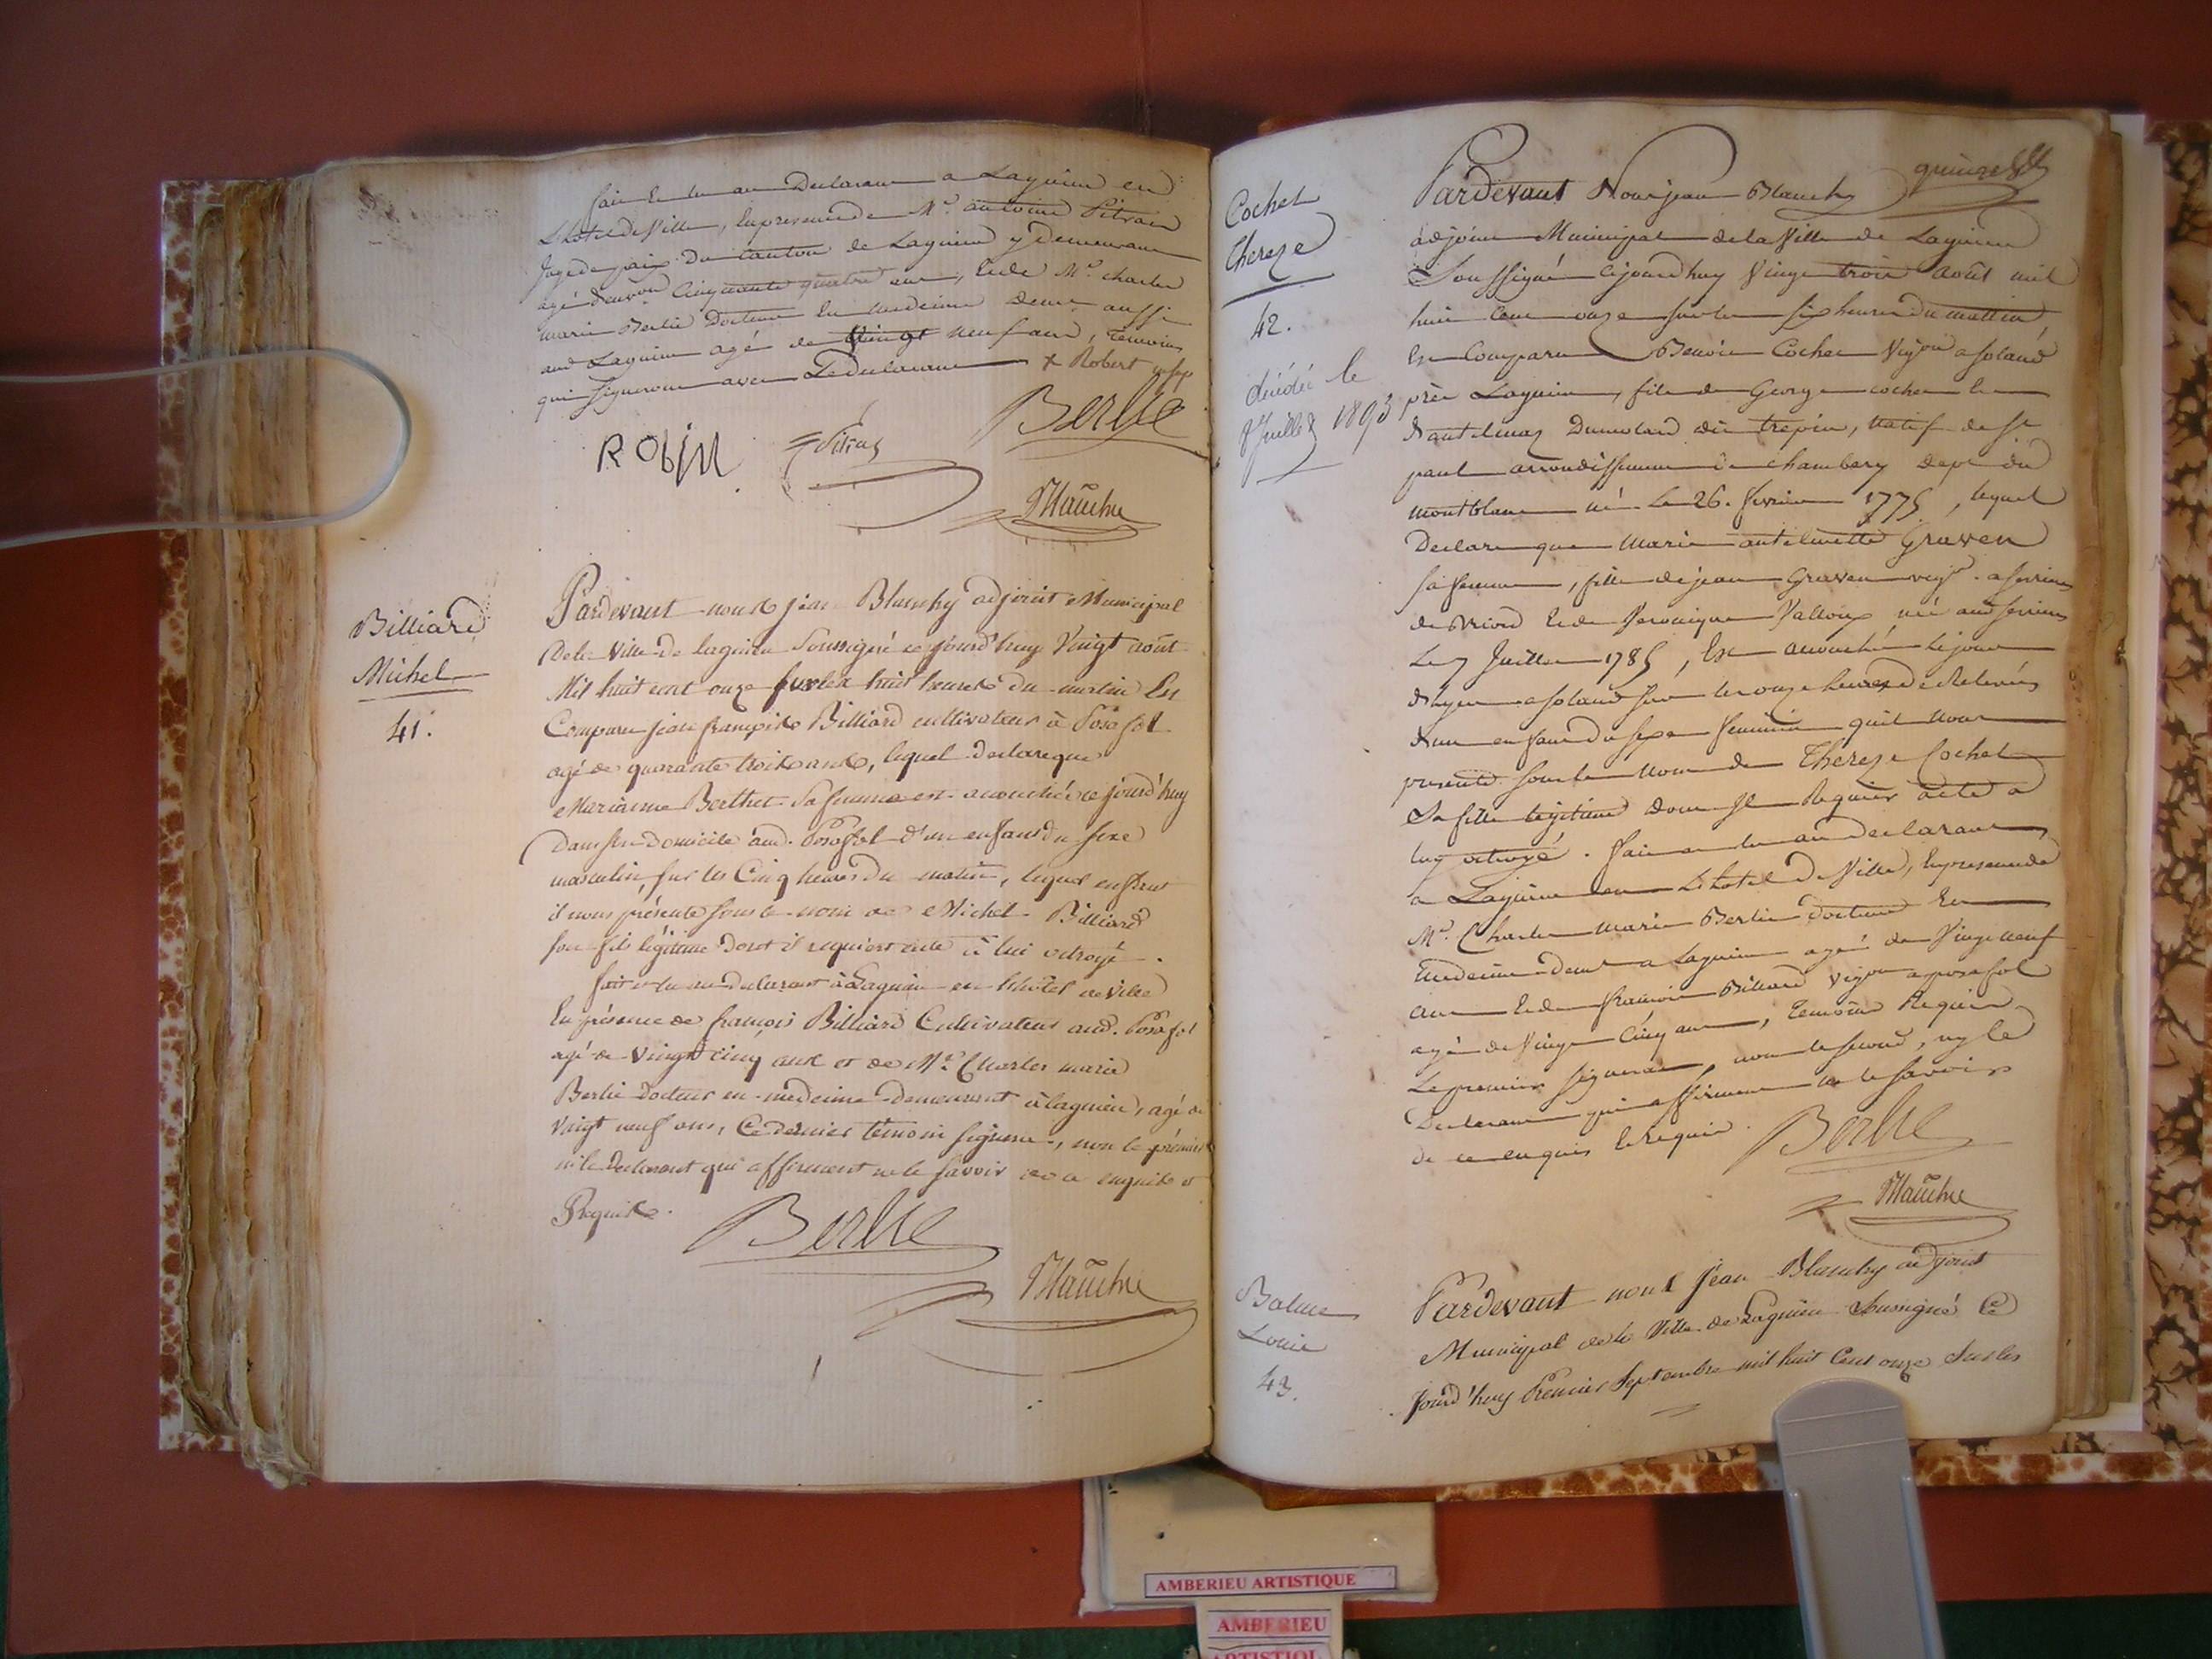 fait et lu au Declarant a Lagnieu en
L'hotel de Ville, En presence de Mr. antoine Pitrat
Juge de paix Du Canton de Lagnieu y Demeurant
agé denvon Cinquante quatre ans, Et de Mr. charles
marie Berlie Docteur En medecine demt aussi
aud Lagnieu agé de Vingt neuf ans, Temoins
qui signeront avec Le Declarant
Berlie
Robin
Billiard
Michel
41.
Pardevant nous Jean Blanchy adjoint Municipal
De la Ville de lagnieu Soussigné ce jourd'huy Vingt août
Mil huit cent onze sur les huit heures du matin Est
Comparu jean françois Billiard cultivateur à Posafol
agé de quarante trois ans, lequel declare que
Marianne Berthet Sa femme est accouchée ce jourd'huy
Dans son Domicile aud. Posafol d'un enfant du sexe
masculin, sur les Cinq heures du matin, lequel enfant
il nous présente sous le nom de Michel Billiard
son fils légitime Dont il requiert acte à lui octroyé.
fait et lu au declarant à Lagnieu en l'hôtel de Ville
En présence de françois Billiard Cultivateur aud. Posafol
agé de Vingt cinq ans et de Mr. Charles marie
Berlie Docteur en medecine demeurant à lagnieu, agé de
Vingt neuf ans, Ce dernier témoin signera, non le prémier
ni le Declarant qui affirment ne le savoir de ce enquis et
Requis.
Berlie
quinze
Cochet
Thereze
42.
décédée le
8 Juillet 1893
Pardevant Nous jean Blanchy
adjoint Municipal de la Ville de Lagnieu
Soussigné cejourdhuy Vingt trois août mil
huit Cent onze sur les six heures du mattin
Est Comparu Benoit Cochet Vigon a soland
près Lagnieu, fils de George cochet et
Dumoland dit trepin, Natif de St
paul arrondissement de chambery Dept du
montblanc né Le 26. fevrier 1775, lequel
Declare que Marie antelmette Graven
sa femme, fille de jean Graven
de Briord Et de Veronique
Le 7 Juillet 1785, Est accouchée Le jour
d'hyer a soland sur les onze heures de Relevée
d'un enfant du sexe feminin quil Nous
presente sous le Nom de Thereze Cochet
Sa fille legitime dont Il Requier acte a
luy octroyé. fait et lu au declarant
a Lagnieu en L'hotel De Ville, En presence de
Mr. Charles Marie Berlie Docteur En
medecine demt a Lagnieu agé de Vingt neuf
ans Et de françois Billiard Vigon a posafol
agé de Vingt Cinq ans, Temoins Requis
Le premier signera, non le second, ny le
Declarant qui affirment ne le savoir
de ce enquis et requis.
Berlie
Balme
Louis
43.
Pardevant nous Jean Blanchy adjoint
Municipal de la Ville de Lagnieu Soussigné Ce
jourd'huy Premier Septembre mil huit Cent onze Sur les
AMBERIEU ARTISTIQUE
AMBERIEU